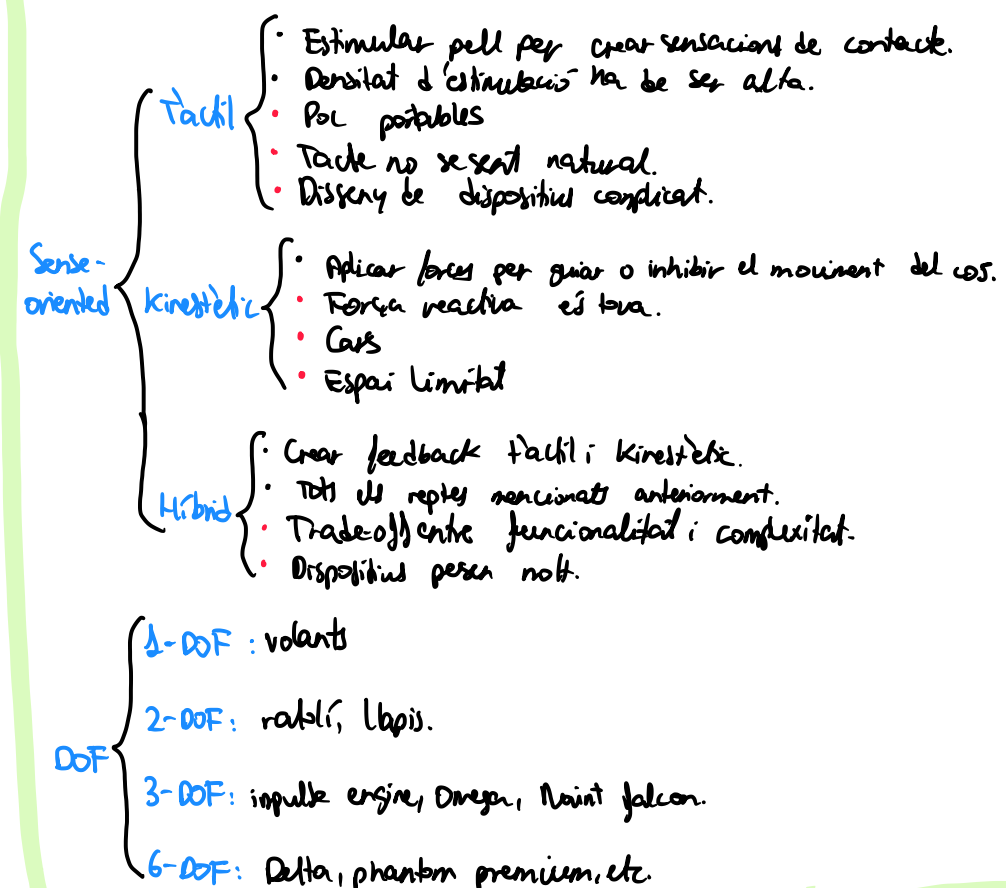 · Estimular pell per crear sensacions de contacte.
· Densitat d'estimulació ha de ser alta.
Tàctil
· Poc portables
· Tacte no se sent natural.
· Disseny de dispositius complicat.
Sense-
oriented
· Aplicar forces per guiar o inhibir el moviment del cos.
Kinestètic
· Força reactiva és tova.
· Cars
· Espai limitat
· Crear feedback tàctil i kinestètic.
· Tots els reptes mencionats anteriorment.
Híbrid
· Trade-off entre funcionalitat i complexitat.
· Dispositius pesen molt.
DOF
1-DOF: volants
2-DOF: ratolí, llapis.
3-DOF: impulse engine, Omega, Novint falcon.
6-DOF: Delta, phantom premium, etc.